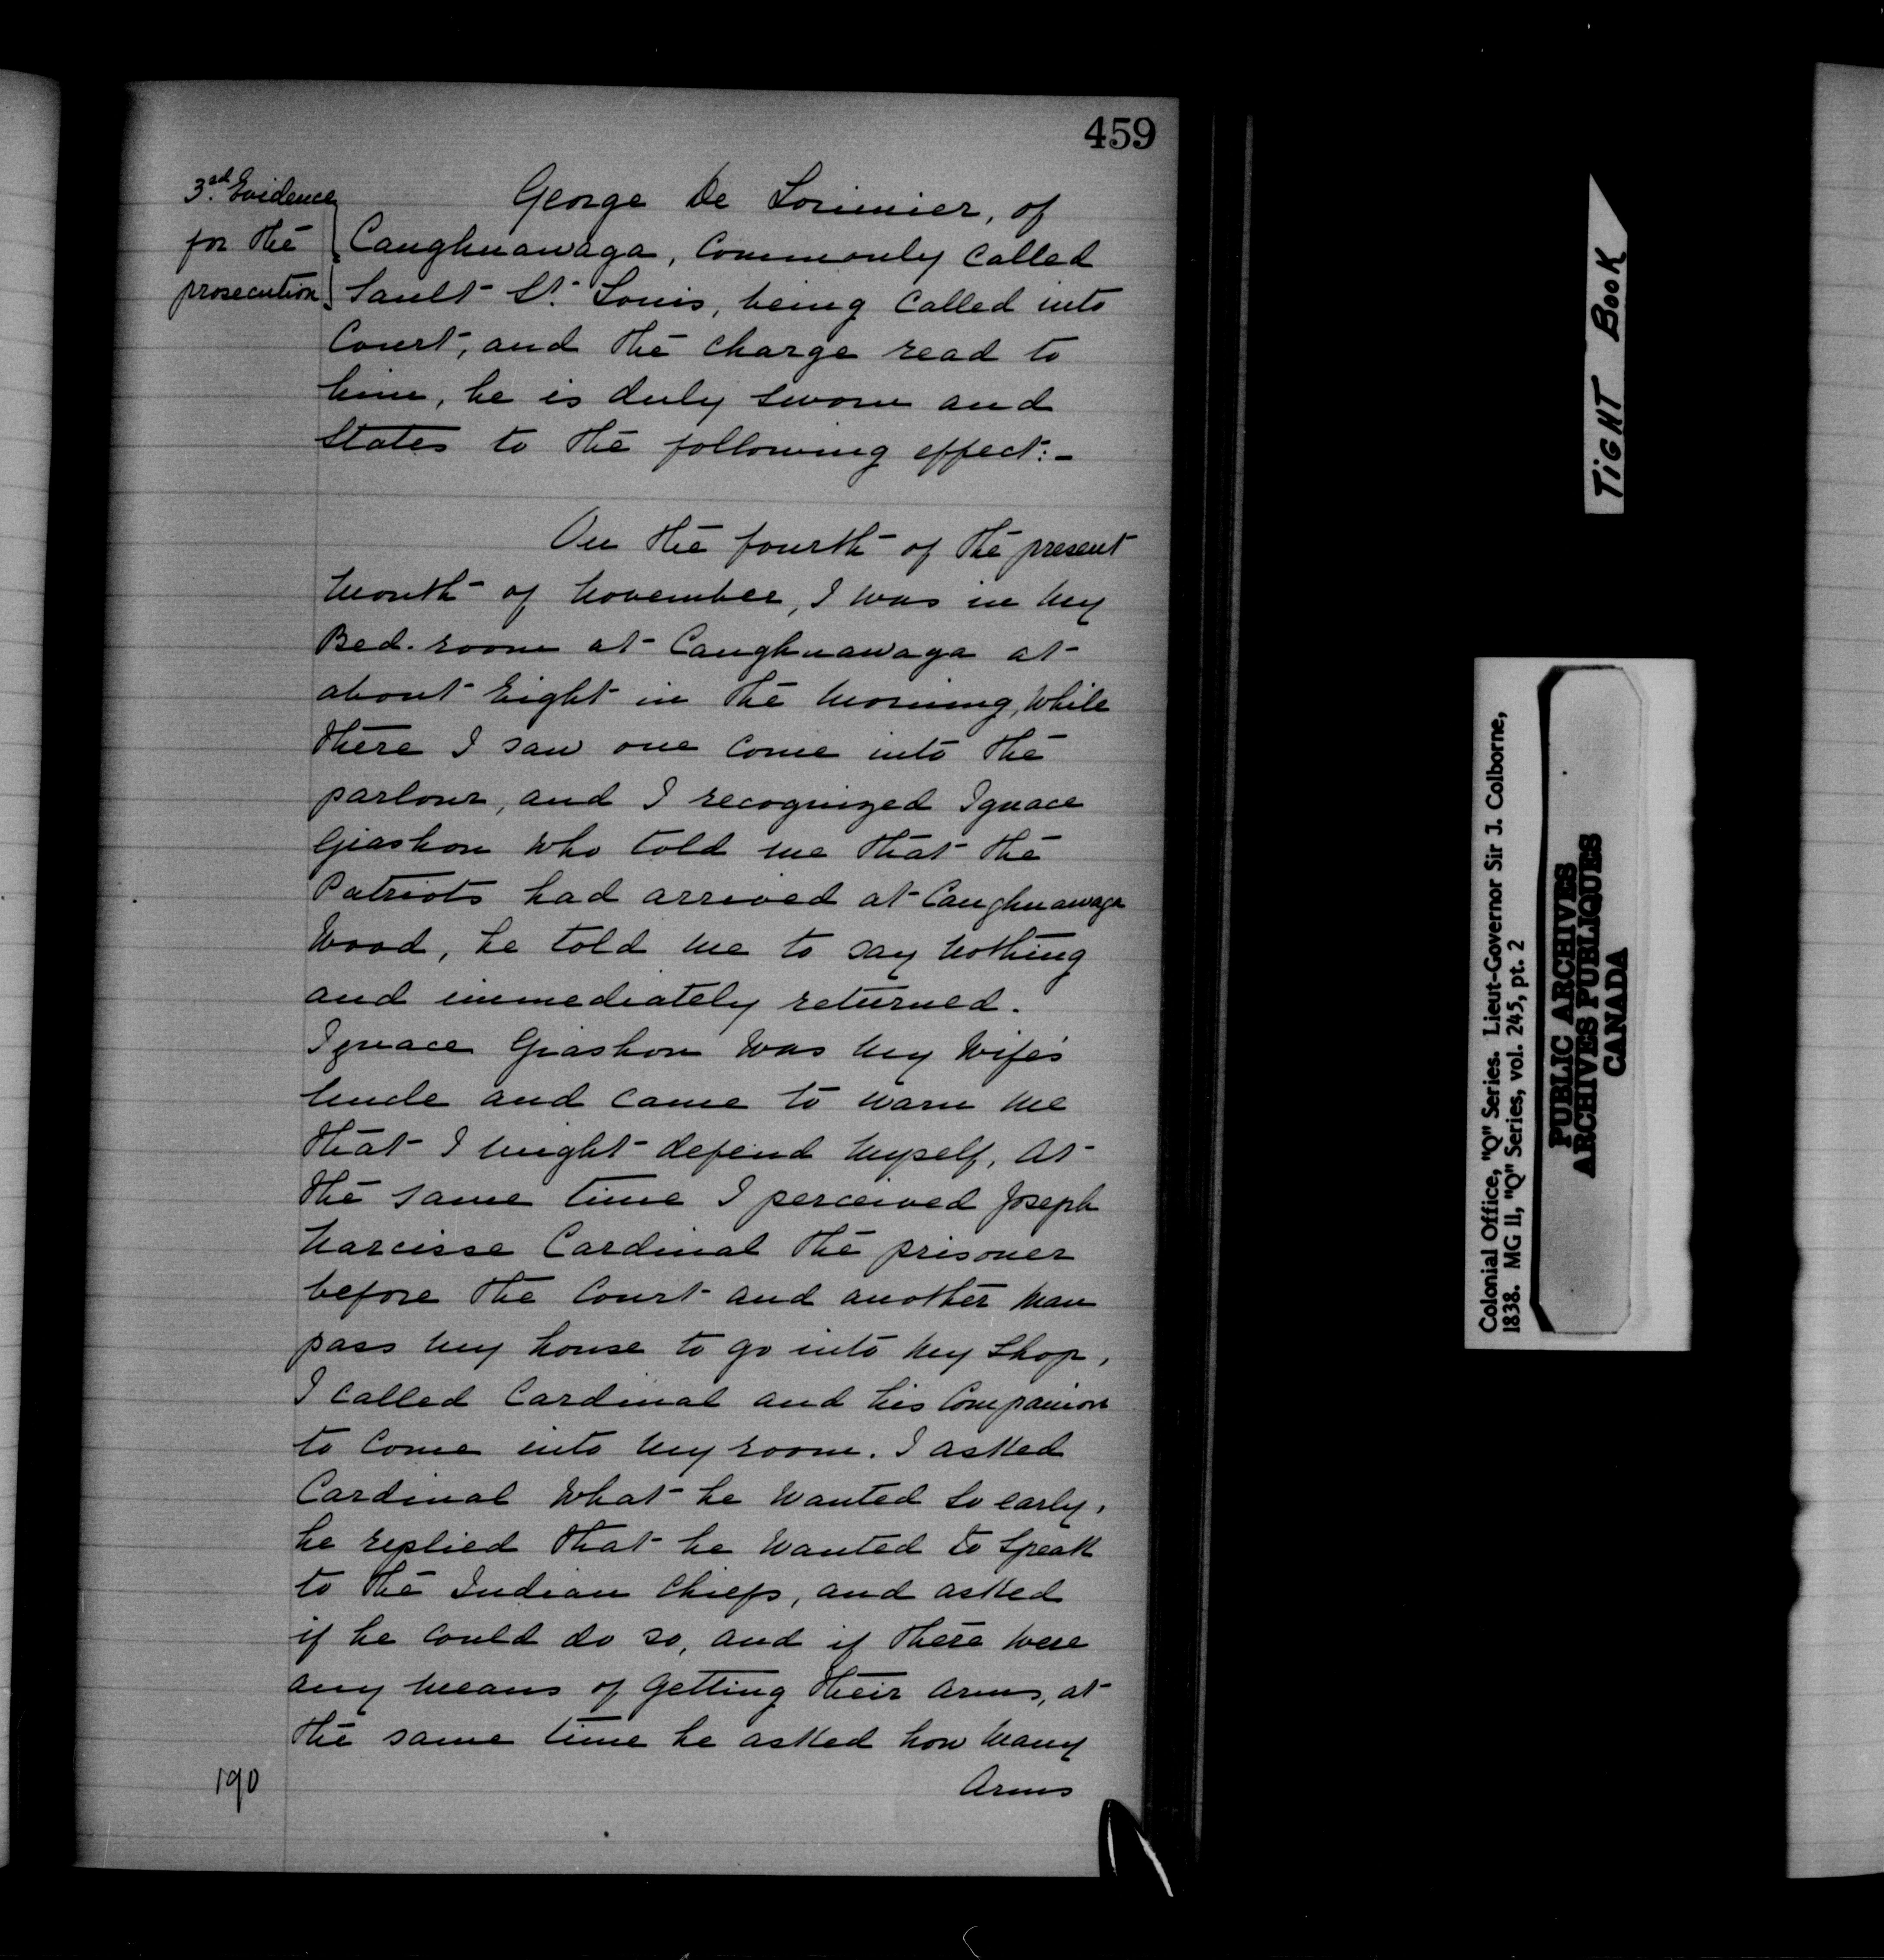 459
3rd. Evidence
for the
prosecution
George De Lorimier, of
Caughnawaga, commonly called
Sault St. Louis, being called into
Court, and the charge read to
him, he is duly sworn and
States to the following effect:-
On the fourth of the present
month of November, I was in my
Bed-room at Caughnawaga at
about Eight in the morning, while
there I saw one come into the
parlour, and I recognized Ignace
Giashon who told me that the
Patriots had arrived at Caughnawaga
Wood, he told me to say nothing
and immediately returned.
Ignace Giashon was my wife's
Uncle and came to warn me
that I might defend myself. At
the same time I perceived Joseph
Narcisse Cardinal the prisoner
before the Court and another man
pass my house to go into my Shop,
I called Cardinal and his Companion
to come into my room. I asked
Cardinal what he wanted so early,
he replied that he wanted to speak
to the Indian Chiefs, and asked
if he could do so, and if there were
any means of getting their arms, at
the same time he asked how many
Arms
190
TIGHT BOOK
Colonial Office, "Q" Series. Lieut-Governor Sir J. Colborne,
1838. MG 11, "Q" Series, vol. 245, pt. 2
PUBLIC ARCHIVES
ARCHIVES PUBLIQUES
CANADA